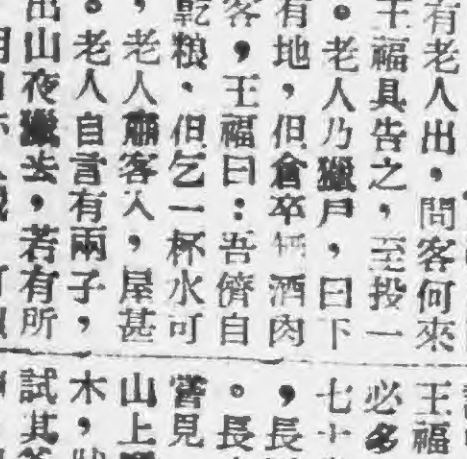 有老人出，問客何來
王福具告之，至投一
。老人乃獵戶，曰下
有地，但倉卒無酒肉
客，王福曰：吾儕自
乾粮，但乞一杯水可
，老人肅客入，屋甚
。老人自言有兩子，
出山夜獵去，若有所
王福
必多
七十
，長
。長
嘗見
山上
木，
試其